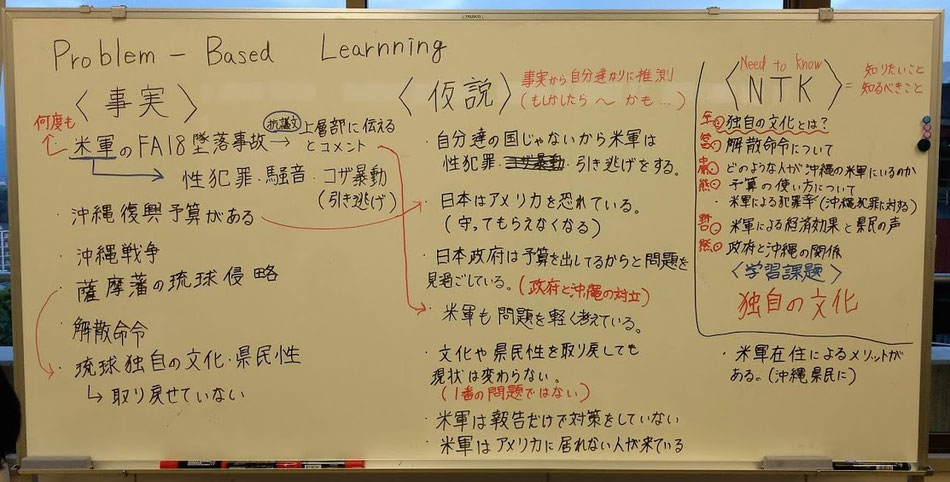 TRUSCO
Problem - Based Learnning
〈事実〉
何度も
米軍のFA18墜落事故→上層部に伝える
抗議文
とコメント
→性犯罪・騒音・コザ暴動
(引き逃げ)
・沖縄復興予算がある
・沖縄戦争
・薩摩藩の琉球侵略
・解散命令
・琉球独自の文化・県民性
↳取り戻せていない
〈仮説〉
事実から自分達なりに推測
(もしかしたら〜かも…)
・自分達の国じゃないから米軍は
性犯罪・コザ暴動・引き逃げをする。
・日本はアメリカを恐れている。
(守ってもらえなくなる)
・日本政府は予算を出してるからと問題を
見過ごしている。(政府と沖縄の対立)
・米軍も問題を軽く考えている。
・文化や県民性を取り戻しても
現状は変わらない。
(1番の問題ではない)
・米軍は報告だけで対策をしていない
・米軍はアメリカに居れない人が来ている
Need to know
〈NTK〉
=知りたいこと
知るべきこと
独自の文化とは?
解散命令について
どのような人が沖縄の米軍にいるのか
予算の使い方について
・米軍による犯罪率(沖縄犯罪に対る)
・米軍による経済効果と県民の声
政府と沖縄の関係
〈学習課題〉
独自の文化
・米軍在住によるメリットが
ある。(沖縄県民に)